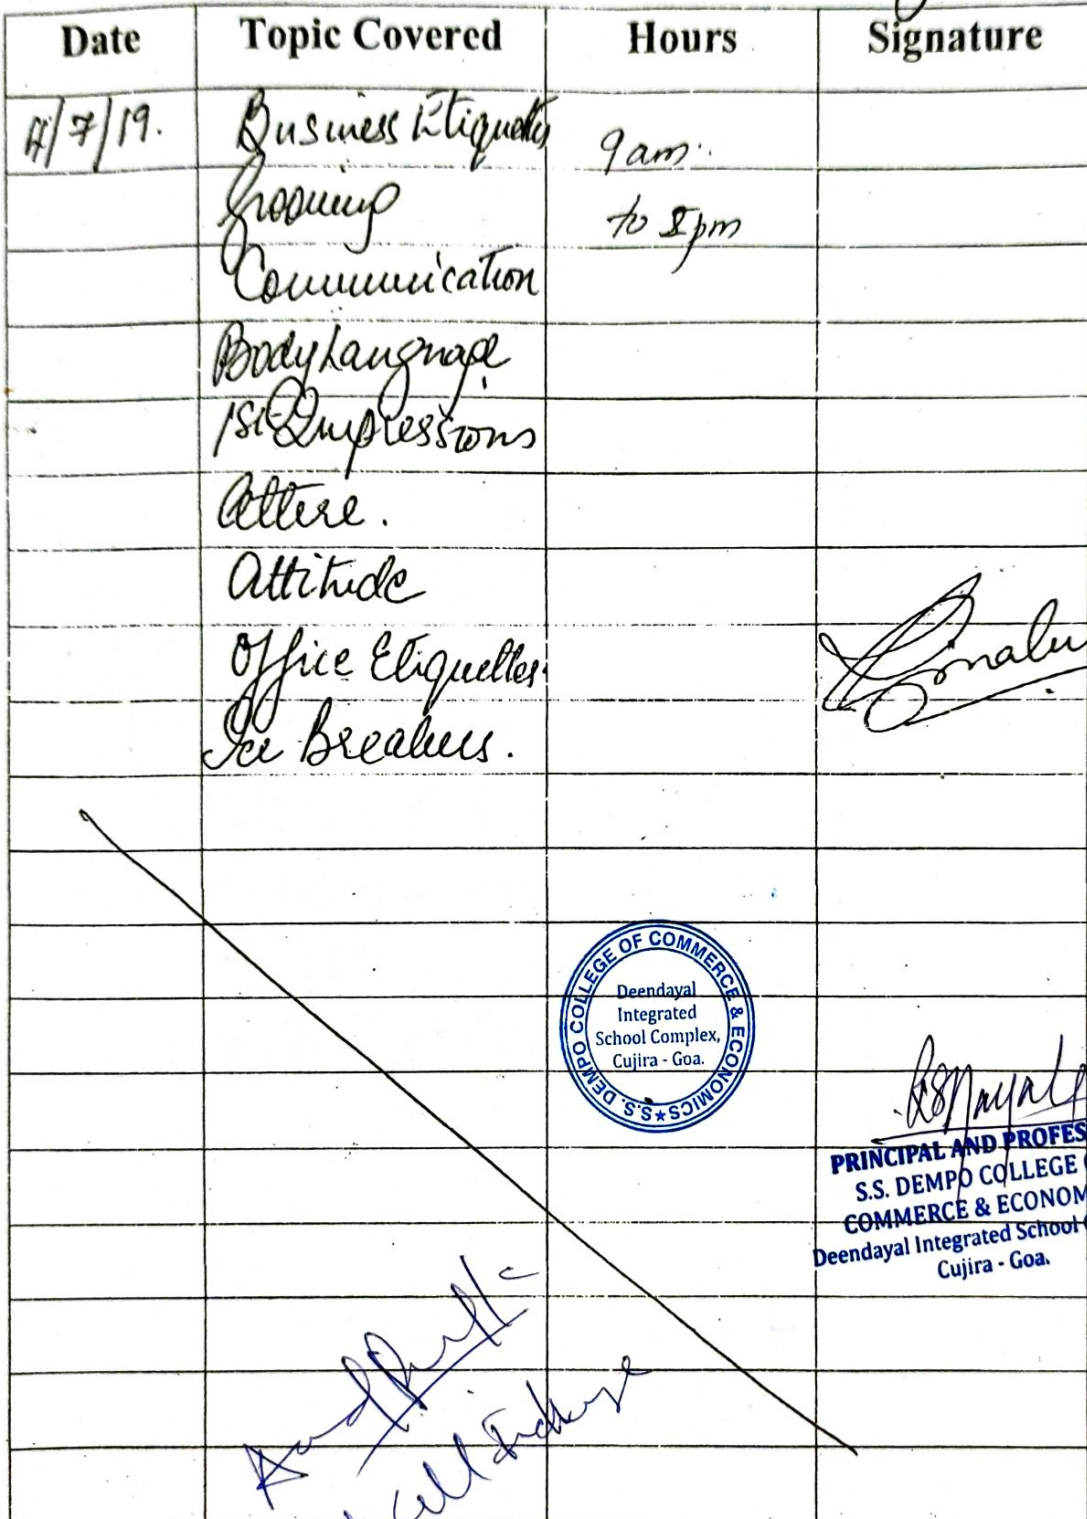 Date Topic Covered Hours Signature
/7/19. Business Etiquettes 9am.
Grooming to pm
Communication
Body Language
1st Impressions
Attire.
Attitude
Office Etiquettes.
Ice Breakers.
S.S. DEMPO COLLEGE OF COMMERCE & ECONOMICS★
Deendayal
Integrated
School Complex,
Cujira - Goa.
PRINCIPAL AND PROFES
S.S. DEMPO COLLEGE
COMMERCE & ECONOM
Deendayal Integrated School
Cujira - Goa.